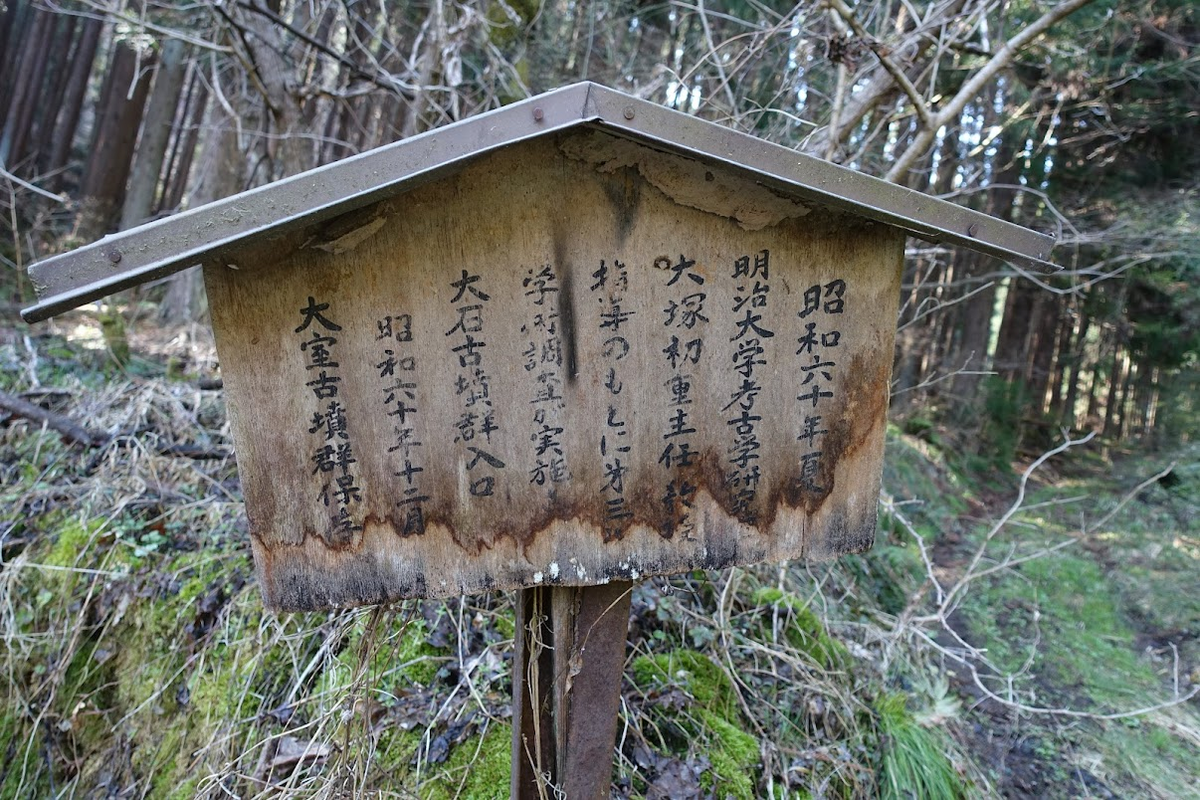 昭和六十年夏
明治大学考古学研究
大塚初重主任教授
指導のもとに才三
学術調査が実施
大石古墳群入口
昭和六十年十二月
大室古墳群保